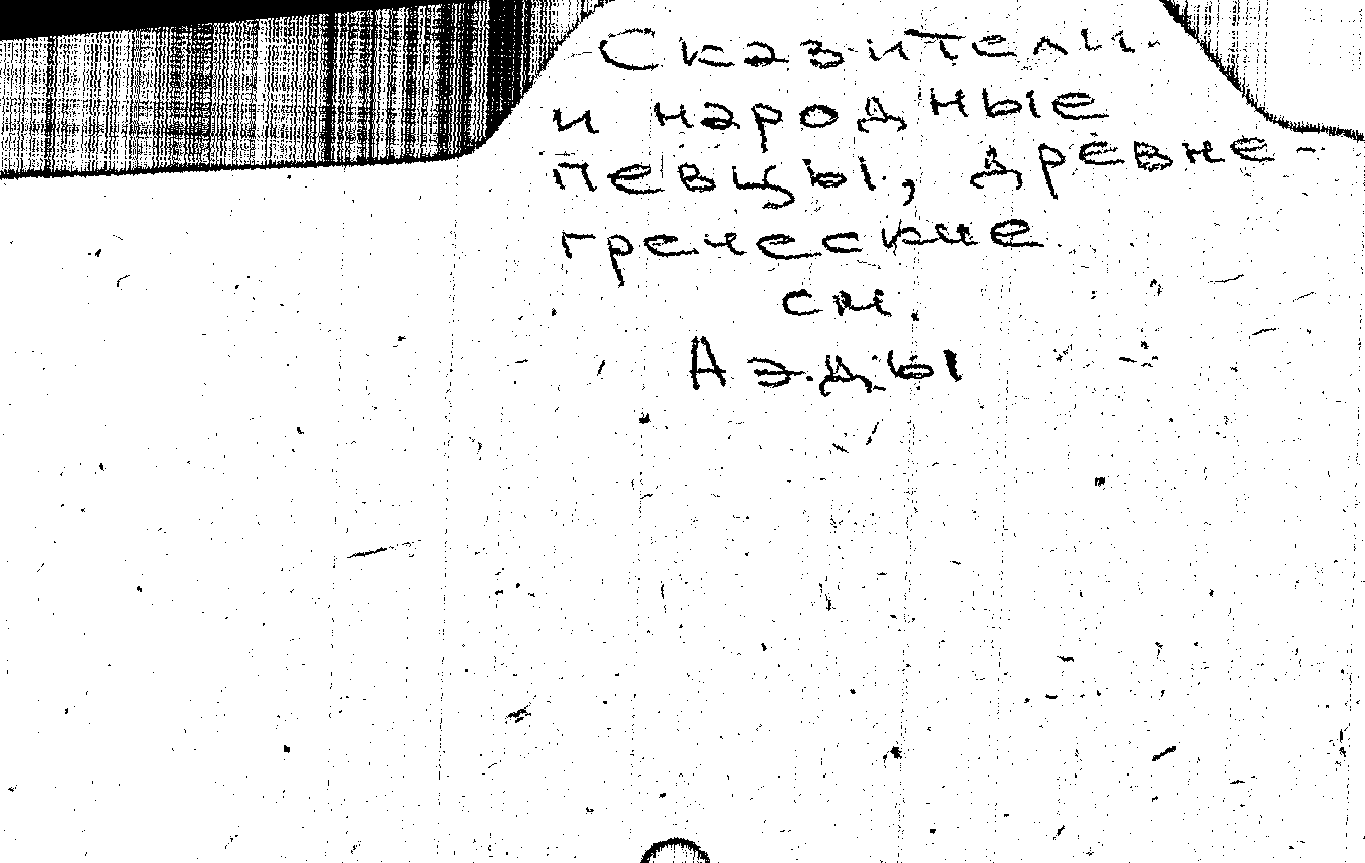 Сказители
и народные
певцы, древне-
греческие
см.
Аэды